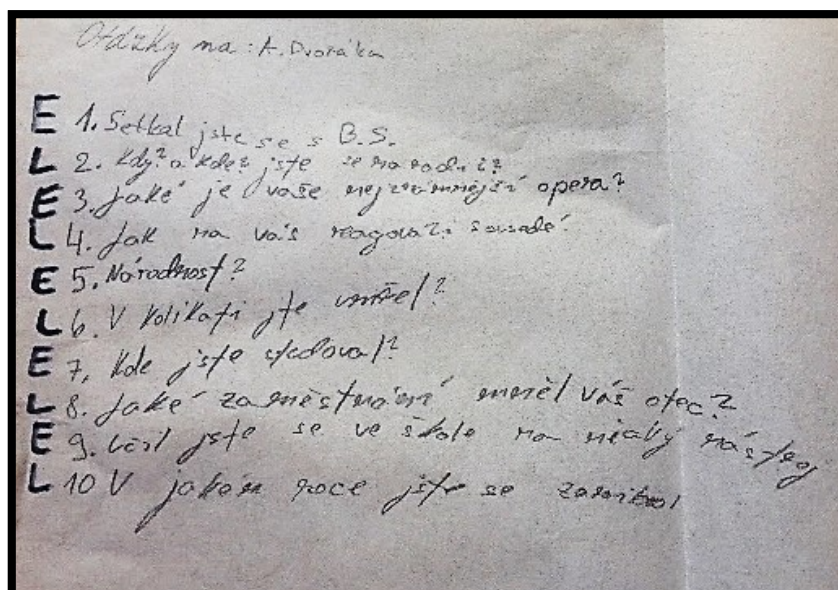 Otázky na: A. Dvořáka
E 1. Setkal jste se s B.S.
L 2. Kdy? a kde? jste se narodil?
E 3. Jaké je vaše nejznámnější opera?
L 4. Jak na vás reagovali sousedé?
E 5. Národnost?
L 6. V kolikati jste umřel?
E 7. Kde jste studoval?
L 8. Jaké zaměstnání měl váš otec?
E 9. Učil jste se ve škole na nějaký nástroj
L 10 V jakém roce jste se